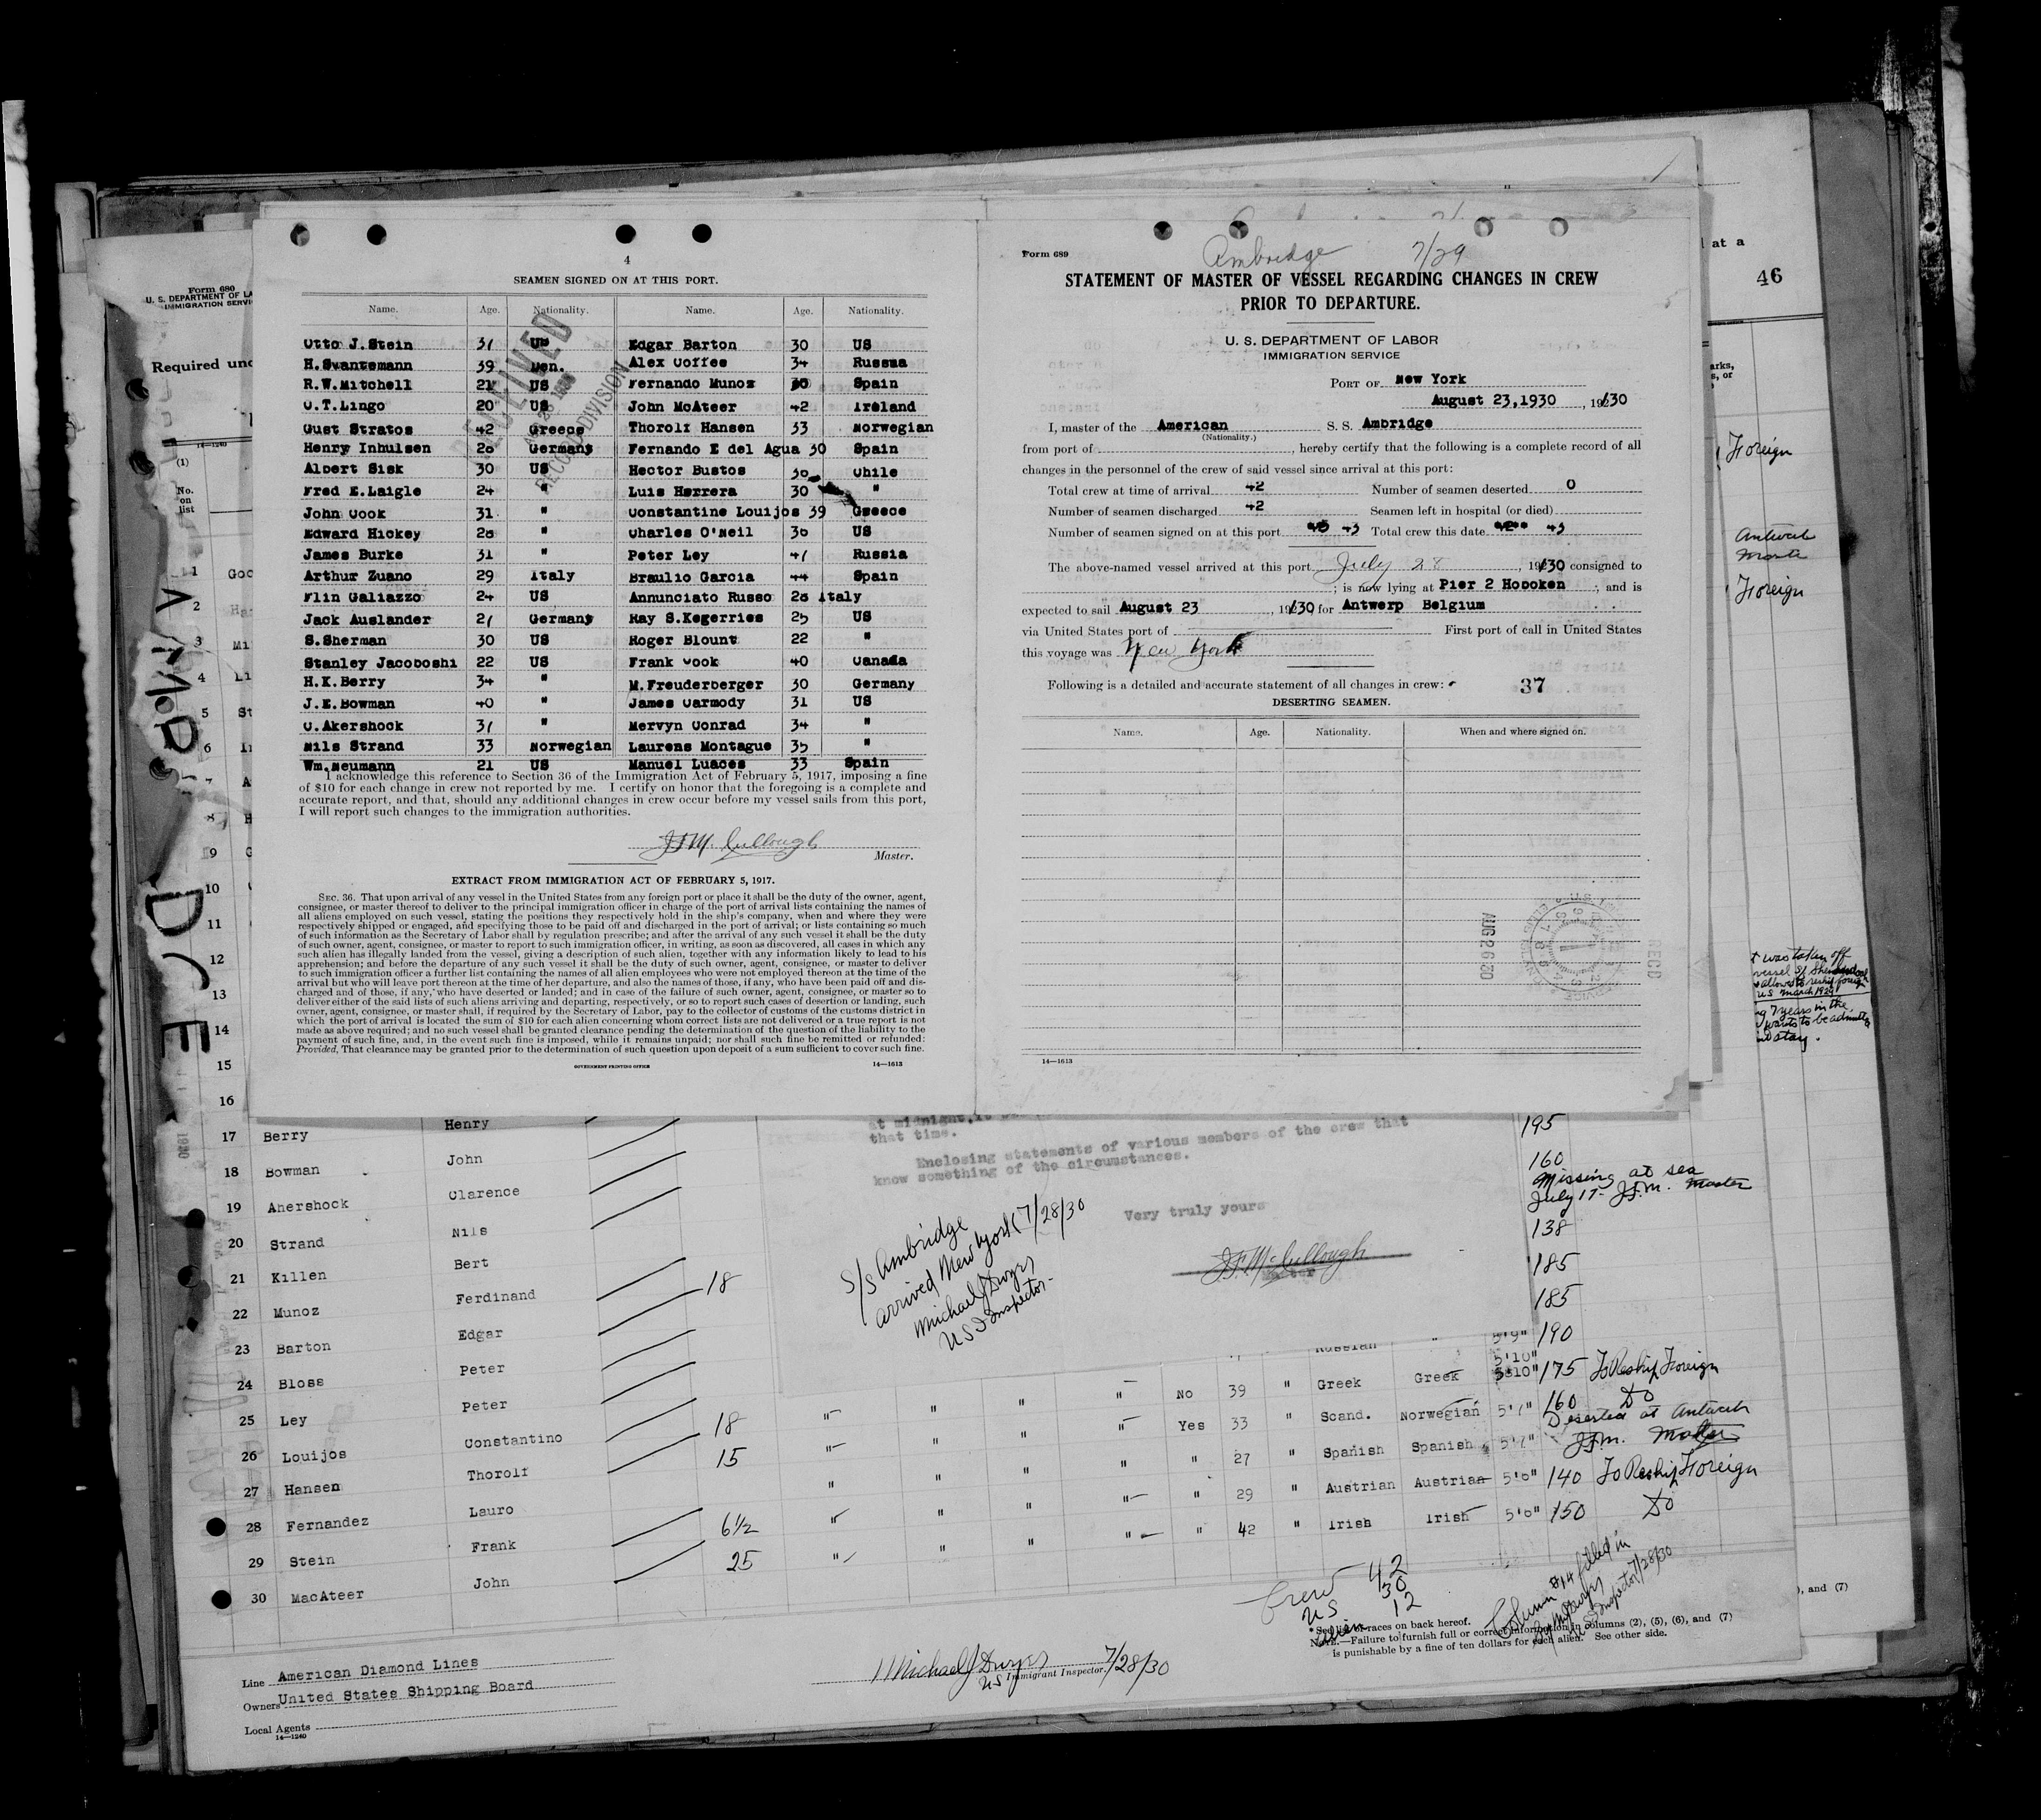 4
SEAMEN SIGNED ON AT THIS PORT.
Name. Age. Nationality. Name. Age. Nationality.
Otto J.Stein 37 US Edgar Barton 30 US
H.Swantemann 39 Den. Alex Coffee 34 Russia
R.W.Mitchell 21 US Fernando Munoz 30 Spain
O.T.Lingo 20 US John McAteer 42 Ireland
Gust Stratos 42 Greece Thorolf Hansen 33 Norwegian
Henry Inhulsen 26 Germany Fernando E del Agua 30 Spain
Albert Sisk 30 US Hector Bustos 30 Chile
Fred E.Laigle 24 " Luis Herrera 30 "
John Cook 31 " Constantine Louijos 39 Greece
Edward Hickey " Charles O'Neil US
James Burke 31 " Peter Ley 47 Russia
Arthur Zuano 29 Italy Braulio Garcia 44 Spain
Flin Galiazzo 24 US Annunciato Russo Italy
Jack Auslander 27 Germany Ray S.Kegerries 25 US
S.Sherman 30 US Roger Blount 22 "
Stanley Jacoboshi 22 US Frank Cook 40 Canada
H.K.Berry 34 " M.Freuderberger 30 Germany
J.E.Bowman 40 " James Carmody 31 US
C.Akershock 37 " Mervyn Conrad 34 "
Nils Strand 33 Norwegian Laurens Montague 35 "
Wm.Neumann 21 US Manuel Luaces 33 Spain
RECEIVED
RECORD DIVISION
I acknowledge this reference to Section 36 of the Immigration Act of February 5, 1917, imposing a fine
of $10 for each change in crew not reported by me. I certify on honor that the foregoing is a complete and
accurate report, and that, should any additional changes in crew occur before my vessel sails from this port,
I will report such changes to the immigration authorities.
J F McCullough
Master.
EXTRACT FROM IMMIGRATION ACT OF FEBRUARY 5, 1917.
SEC. 36. That upon arrival of any vessel in the United States from any foreign port or place it shall be the duty of the owner, agent,
consignee, or master thereof to deliver to the principal immigration officer in charge of the port of arrival lists containing the names of
all aliens employed on such vessel, stating the positions they respectively hold in the ship's company, when and where they were
respectively shipped or engaged, and specifying those to be paid off and discharged in the port of arrival; or lists containing so much
of such information as the Secretary of Labor shall by regulation prescribe; and after the arrival of any such vessel it shall be the duty
of such owner, agent, consignee, or master to report to such immigration officer, in writing, as soon as discovered, all cases in which any
such alien has illegally landed from the vessel, giving a description of such alien, together with any information likely to lead to his
apprehension; and before the departure of any such vessel it shall be the duty of such owner, agent, consignee, or master to deliver
to such immigration officer a further list containing the names of all alien employees who were not employed thereon at the time of the
arrival but who will leave port thereon at the time of her departure, and also the names of those, if any, who have been paid off and dis-
charged and of those, if any, who have deserted or landed; and in case of the failure of such owner, agent, consignee, or master so to
deliver either of the said lists of such aliens arriving and departing, respectively, or so to report such cases of desertion or landing, such
owner, agent, consignee, or master shall, if required by the Secretary of Labor, pay to the collector of customs of the customs district in
which the port of arrival is located the sum of $10 for each alien concerning whom correct lists are not delivered or a true report is not
made as above required; and no such vessel shall be granted clearance pending the determination of the question of the liability to the
payment of such fine, and, in the event such fine is imposed, while it remains unpaid; nor shall such fine be remitted or refunded:
Provided, That clearance may be granted prior to the determination of such question upon deposit of a sum sufficient to cover such fine.
GOVERNMENT PRINTING OFFICE 14—1613
Ambridge 7/29
Form 689
STATEMENT OF MASTER OF VESSEL REGARDING CHANGES IN CREW
PRIOR TO DEPARTURE.
U. S. DEPARTMENT OF LABOR
IMMIGRATION SERVICE
PORT OF New York
August 23,1930 , 192/30
I, master of the American S. S. Ambridge
(Nationality.)
from port of , hereby certify that the following is a complete record of all
changes in the personnel of the crew of said vessel since arrival at this port:
Total crew at time of arrival 42 Number of seamen deserted 0
Number of seamen discharged 42 Seamen left in hospital (or died)
Number of seamen signed on at this port 43 Total crew this date 43
The above-named vessel arrived at this port July 28 , 192/30 consigned to
; is now lying at Pier 2 Hoboken ; and is
expected to sail August 23 , 192/30 for Antwerp Belgium
via United States port of First port of call in United States
this voyage was New York
Following is a detailed and accurate statement of all changes in crew:
37
DESERTING SEAMEN.
Name. Age. Nationality. When and where signed on.
AUG 26 30
RECD
14—1613
Form 680
U. S. DEPARTMENT OF LA
IMMIGRATION SERVI
Required und
14—1240
(1)
No.
on
list
AMBRIDGE
1 Goo
2 Ha
3 Mi
4 Li
5 St
6 In
7 A
8 H
9 G
10
11
12
13
14
15
16
at a
46
arks,
s, or
Foreign
Antwerp
Foreign
t was taken off
allowed to reship foreign
US March 1924
7 years in the
wants to be admitted
stay.
at midnight,it
that time.
Enclosing statements of various members of the crew that
know something of the circumstances.
Very truly yours
J.F.McCullough
Master
S/S Ambridge
arrived New York 7/28/30
Michael J Dwyer
US I Inspector
Henry
17 Berry John 195
18 Bowman Clarence 160
Missing at sea
July 17- J.F.M. Master
19 Ahershock Nils 138
20 Strand Bert 185
21 Killen Ferdinand 18 185
22 Munoz Edgar 190
23 Barton Peter Russian " 5'9"
5'10"
24 Bloss Peter " " " No 39 " Greek Greek 5'10" 175 To Reship Foreign
25 Ley Constantino 18 " " " " Yes 33 " Scand. Norwegian 5'7" 160 Do
26 Louijos Thorolf 15 " " " " " 27 " Spanish Spanish 5'7" Deserted at Antwerp
J.F.M. Master
27 Hansen Lauro " " " " " 29 " Austrian Austrian 140 To Reship Foreign
28 Fernandez Frank 6½ " " " " " 42 " Irish Irish 150 Do
29 Stein John 25 " " "
30 MacAteer
Crew 42
US 30
Alien 12
Column #14 filled in
by M J Dwyer
US Inspector 7/28/30
* See list of races on back hereof.
NOTE.—Failure to furnish full or correct information in columns (2), (5), (6), and (7)
is punishable by a fine of ten dollars for each alien. See other side.
), and (7)
Line American Diamond Lines
Owners United States Shipping Board
Local Agents
14—1240
Michael J Dwyer 7/28/30
US Immigrant Inspector.